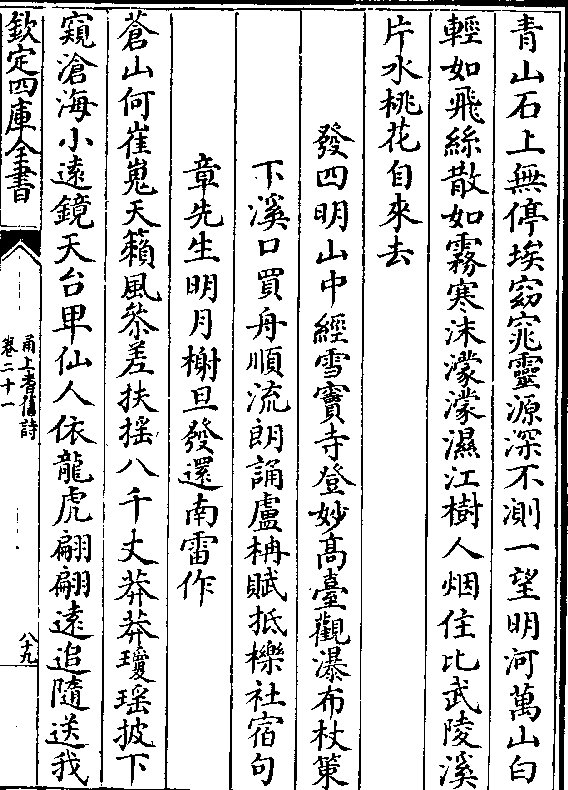 青山石上無停埃窈窕靈源深不測一望明河萬山白
輕如飛絲散如霧寒沫濛濛濕江樹人烟住比武陵溪
片水桃花自來去
發四明山中經雪竇寺登妙高臺觀瀑布杖策
下溪口買舟順流朗誦盧柟賦抵櫟社宿句
章先生明月榭旦發還南雷作
蒼山何崔嵬天籟風叅差扶摇八千丈莽莽瓊瑶披下
窺滄海小遠鏡天台卑仙人依龍虎翩翩遠追隨送我
欽定四庫全書
甬上耆舊詩
卷二十一
八十九